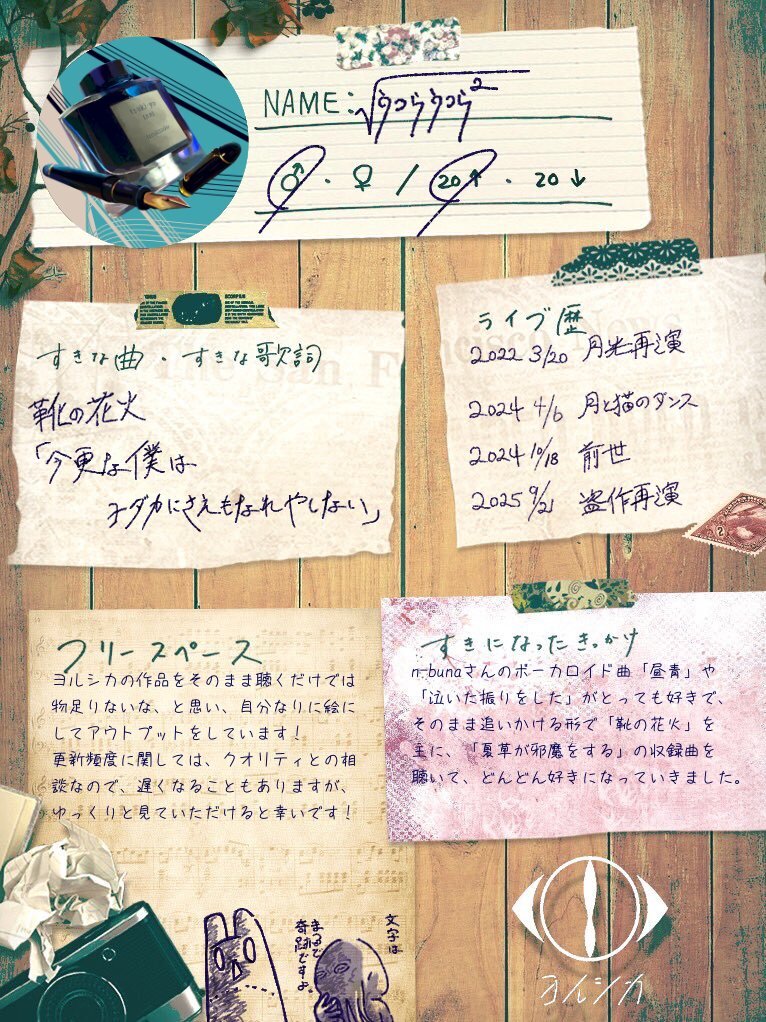 NAME: √うつらうつら²
♂ ・ ♀ / 20↑ ・ 20↓
すきな曲・すきな歌詞
靴の花火
「今更な僕は
ヨダカにさえもなれやしない」
ライブ歴
2022 3/20 月光再演
2024 4/6 月と猫のダンス
2024 10/18 前世
2025 9/21 盗作再演
フリースペース
ヨルシカの作品をそのまま聴くだけでは
物足りないな、と思い、自分なりに絵に
してアウトプットをしています！
更新頻度に関しては、クオリティとの相
談なので、遅くなることもありますが、
ゆっくりと見ていただけると幸いです！
すきになったきっかけ
n-bunaさんのボーカロイド曲「昼青」や
「泣いた振りをした」がとっても好きで、
そのまま追いかける形で「靴の花火」を
主に、「夏草が邪魔をする」の収録曲を
聴いて、どんどん好きになっていきました。
文字は
まるで
奇跡ですよ
ヨルシカ